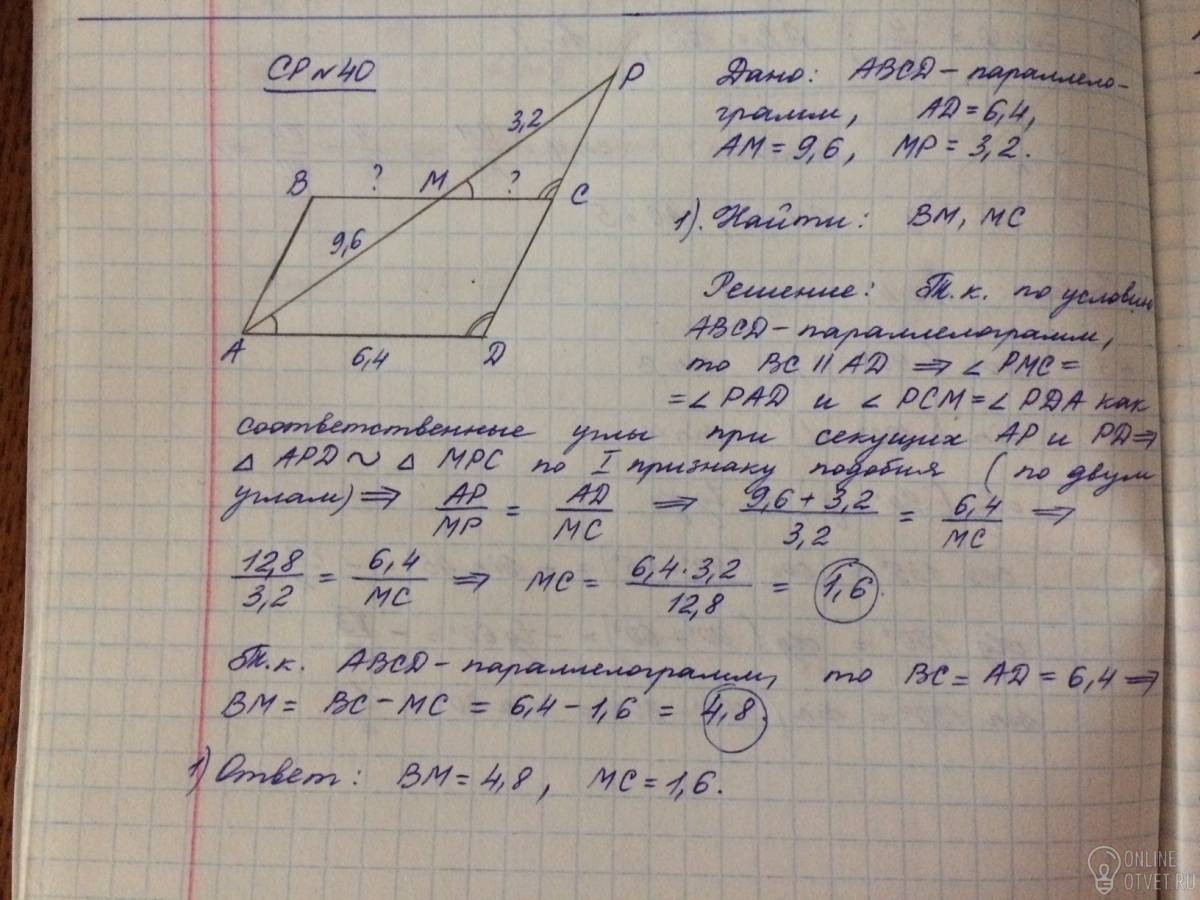 СР №40
P
3,2
B ? M ? C
9,6
A 6,4 D
Дано: ABCD - параллело-
грамм, AD = 6,4,
AM = 9,6, MP = 3,2.
1). Найти: BM, MC
Решение: Т.к. по условию
ABCD - параллелограмм,
то BC || AD ⇒ ∠ PMC =
= ∠ PAD и ∠ PCM = ∠ PDA как
соответственные углы при секущих AP и PD ⇒
△ APD ~ △ MPC по I признаку подобия (по двум
углам) ⇒ AP/MP = AD/MC ⇒ 9,6 + 3,2/3,2 = 6,4/MC ⇒
12,8/3,2 = 6,4/MC ⇒ MC = 6,4 · 3,2/12,8 = 1,6.
Т.к. ABCD - параллелограмм, то BC = AD = 6,4 ⇒
BM = BC - MC = 6,4 - 1,6 = 4,8.
1) Ответ: BM = 4,8, MC = 1,6.
ONLINE
OTVET.RU